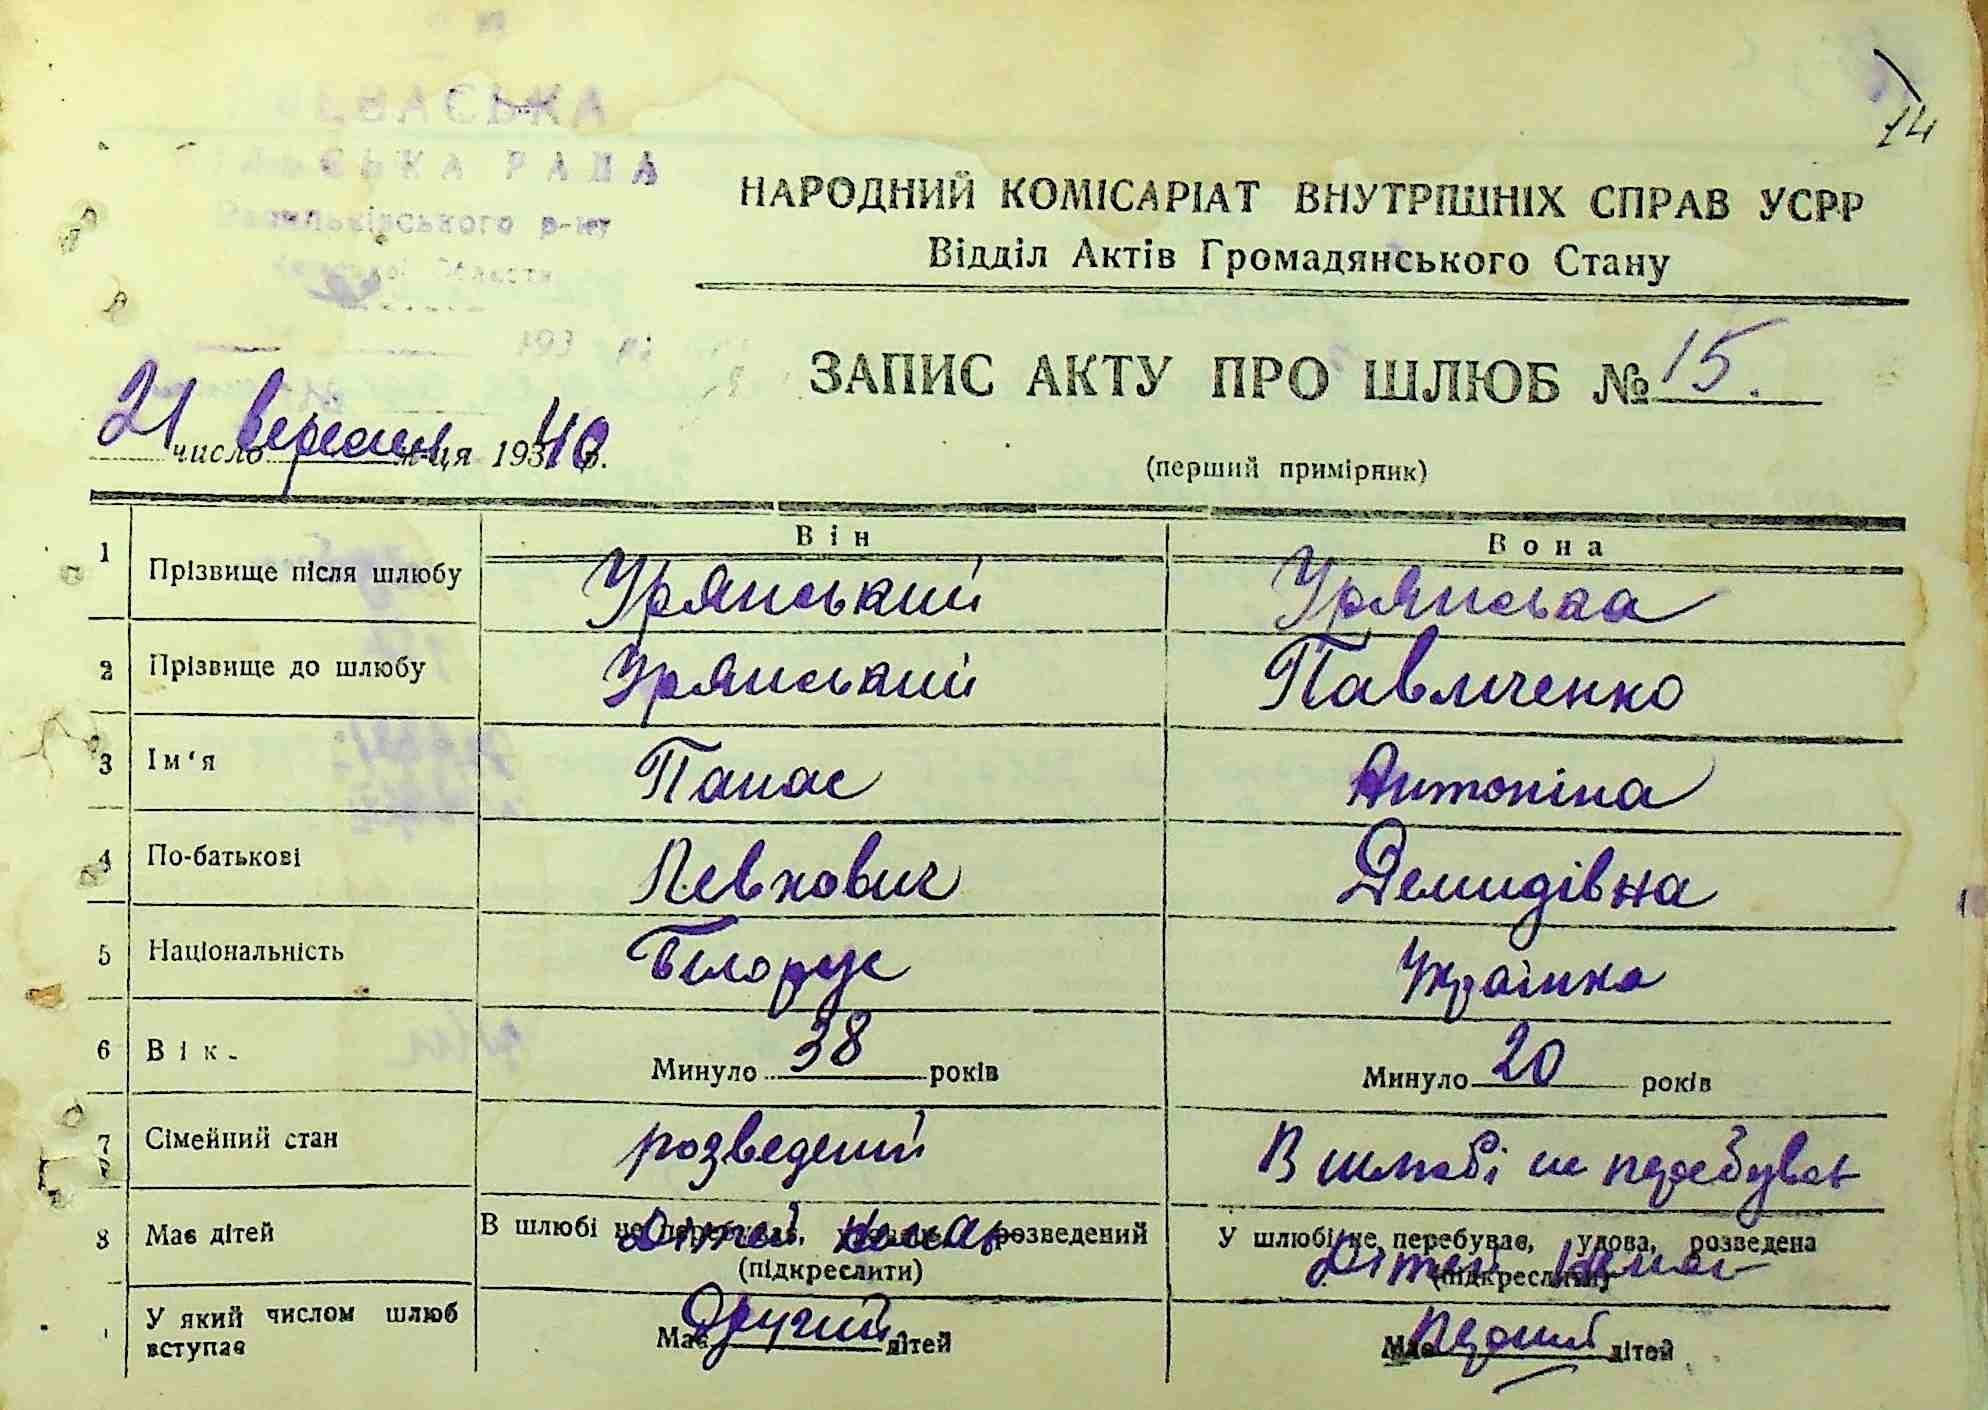 14
РАДА
Васильківського р-ну
Області
193 рі
НАРОДНИЙ КОМІСАРІАТ ВНУТРІШНІХ СПРАВ УСРР
Відділ Актів Громадянського Стану
ЗАПИС АКТУ ПРО ШЛЮБ № 15.
21 число вересня м-ця 1940 р.
(перший примірник)
Він Вона
1 Прізвище після шлюбу Урянський Урянська
2 Прізвище до шлюбу Урянський Павличенко
3 Ім'я Панас Антоніна
4 По-батькові Левкович Демидівна
5 Національність Білорус Українка
6 Вік. Минуло 38 років Минуло 20 років
7 Сімейний стан розведений В шлюбі не перебував
8 Має дітей В шлюбі не перебував, розведений У шлюбі не перебуває, удова, розведена
Дітей немає Дітей немає
(підкреслити) (підкреслити)
У який числом шлюб вступає Має Другий дітей Має Перший дітей